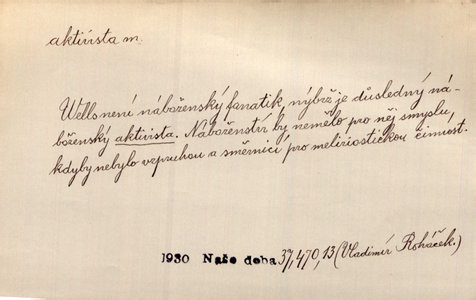 aktivista m.
Wells není náboženský fanatik, nýbrž je důsledný ná-
boženský aktivista. Náboženství by nemělo pro něj smyslu,
kdyby nebylo vzpruhou a směrnicí pro melioristickou činnost.
1930 Naše doba 37, 470, 13 (Vladimír Roháček.)